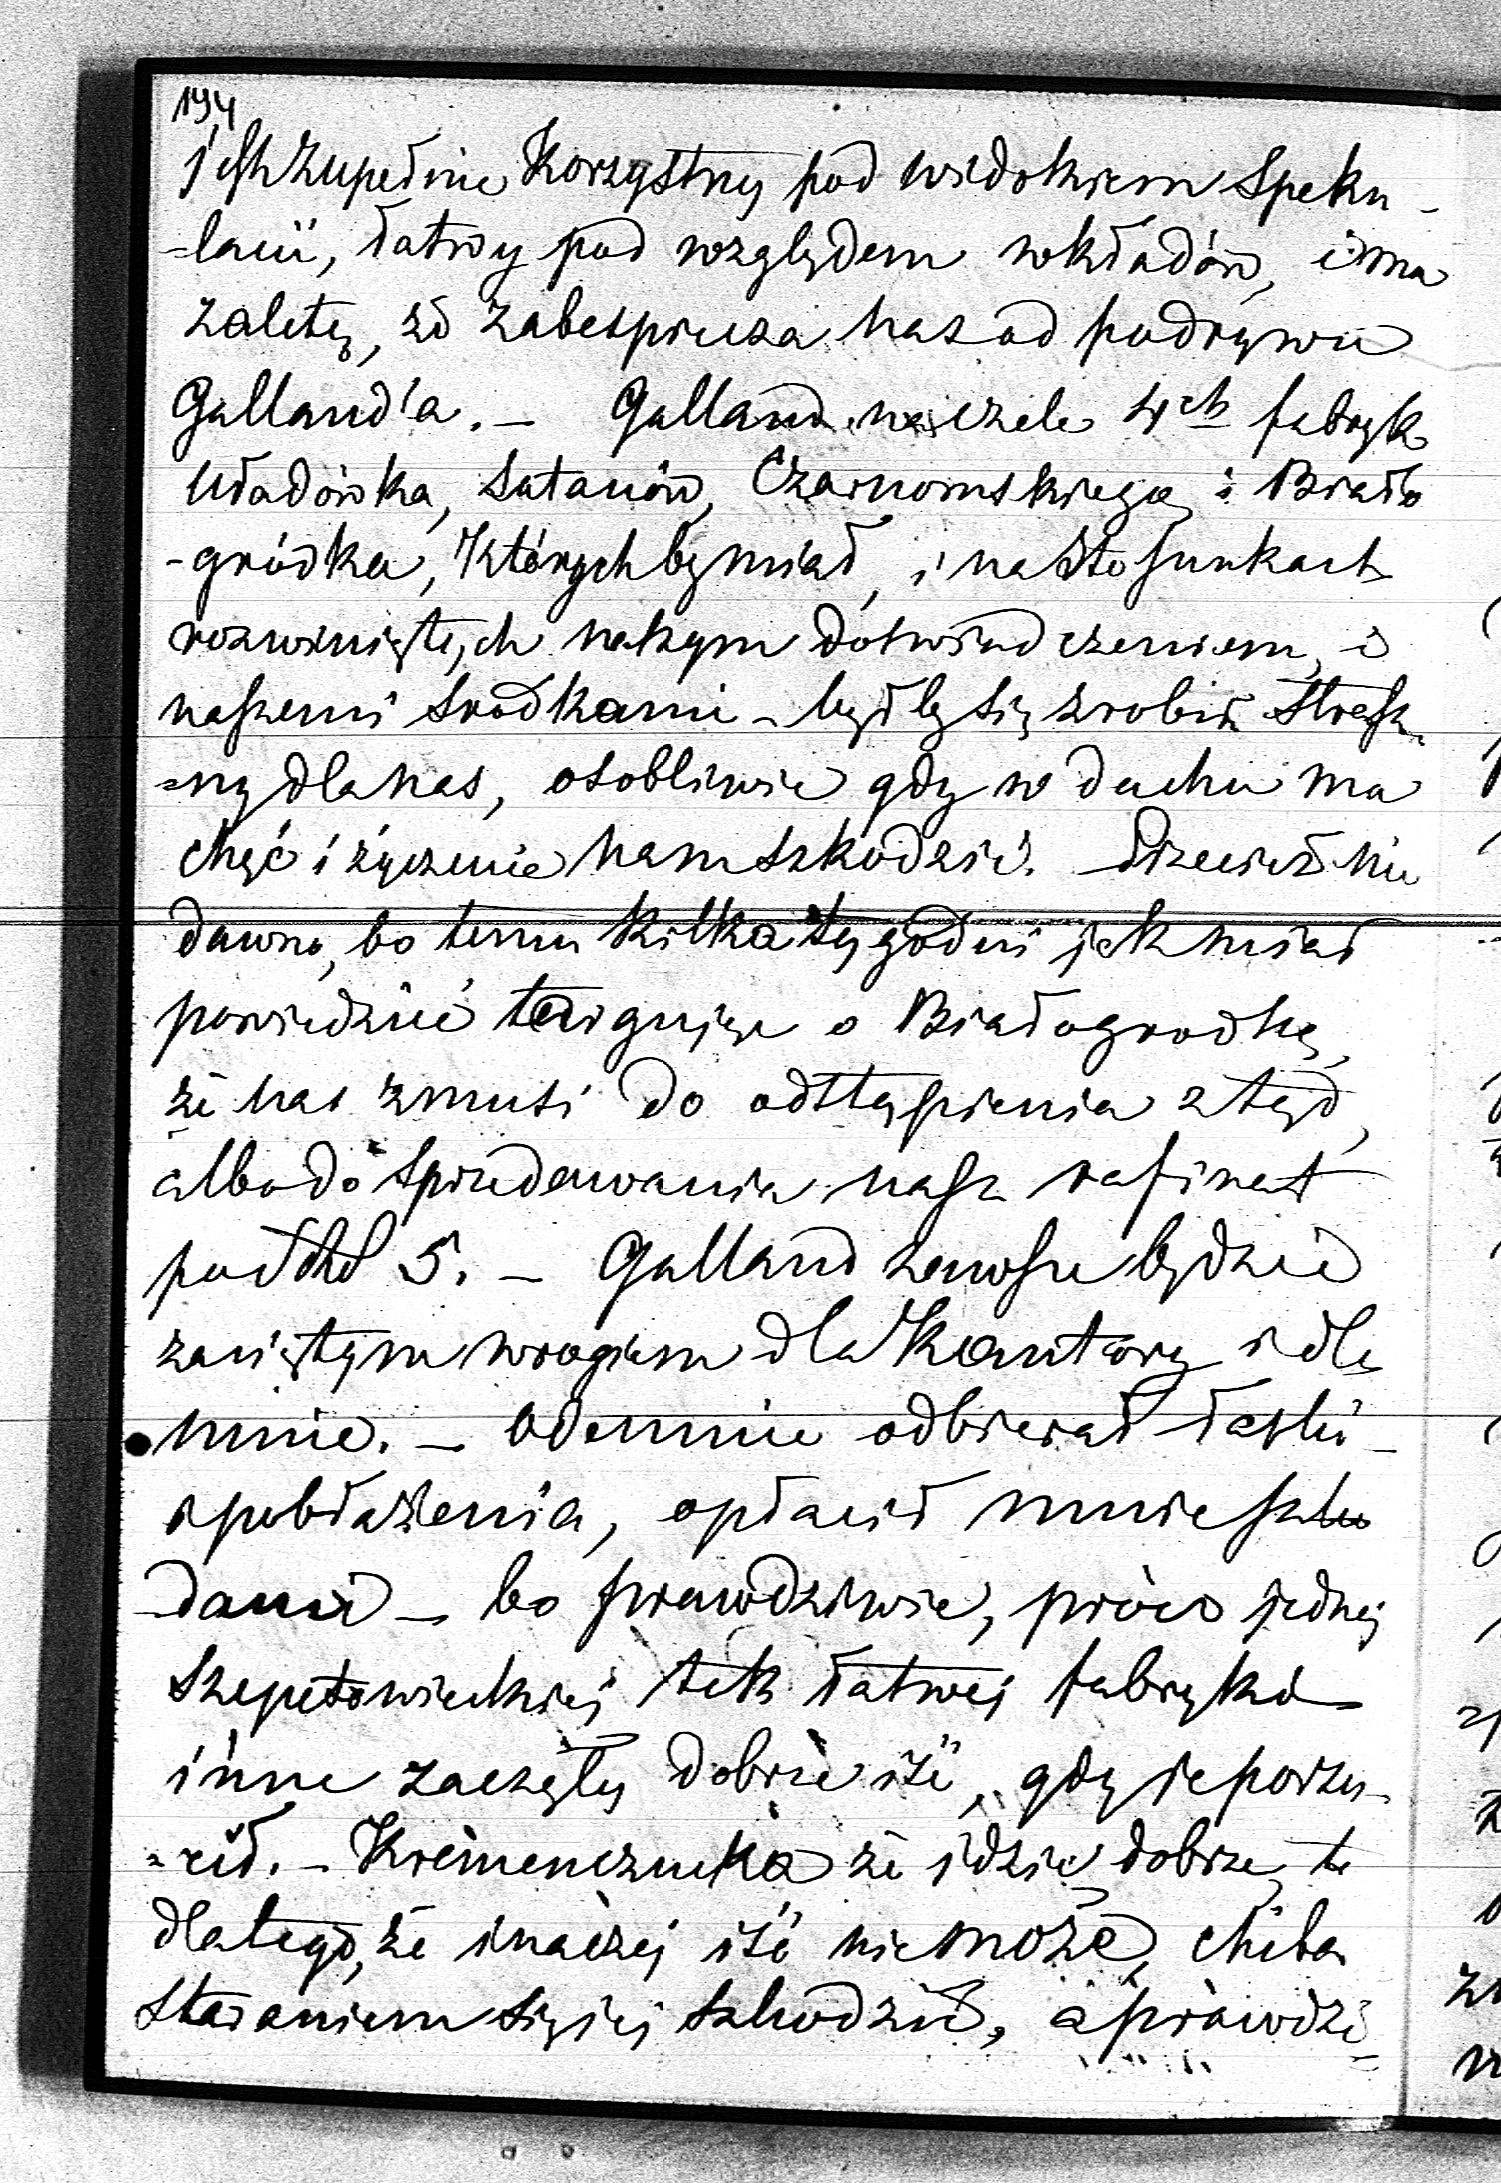 194
jest zupełnie korzystny pod widokiem speku-
-lacii, łatwy pod względem wkładów, i ma
zaletę, że zabespiecza nas od podrywu
Galland'a. – Galland na czele 4ch fabryk
Uładówka, Satanów, Czarnomskiego, i Biało
-gródka, których by miał, i na stosunkach
rozwiniętych naszym doświadczeniem, i
naszemi srodkami – byłby się zrobił strasz-
-ny dla nas, osobliwie gdy w duchu ma
chęć i życzenie nam szkodzić. Przecież nie
dawno, bo temu kilka tygodni jak miał
powiedzieć targując o Białogrodkę,
że nas zmusi do odstąpienia ztąd,
albo do sprzedawania nasz rafinat
po 5. – Galland zawsze będzie
zaciętym wrogiem dla Kantory i dla
mnie. – Odemnie odbierał łaski
i pobłażenia, opłacił mnie szka
-dami – bo prawdziwie, prócz jednej
Szepetowieckiej tak łatwej fabryki
inne zaczęły dobrze iść, gdy je porzu-
-cił. – Kremenczucka że idzie dobrze, to
dlatego, że inaczej iść nie może, chiba
staraniem się jej szkodzić, a prawdzi-